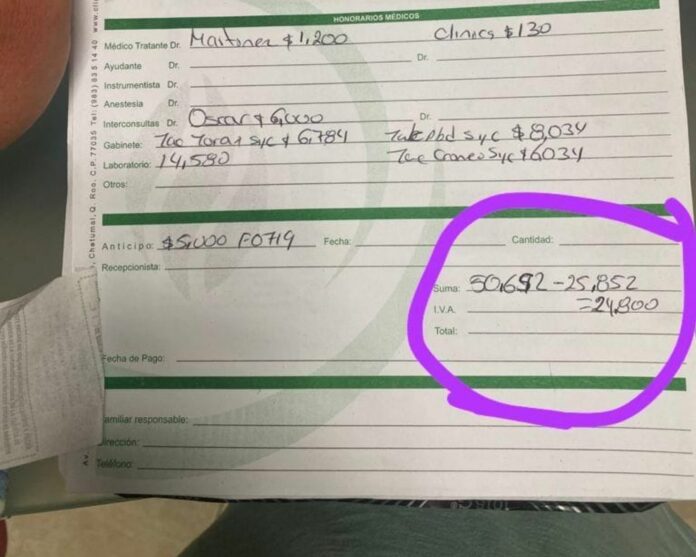 HONORARIOS MÉDICOS
Médico Tratante Dr. Martinez $1,200 Clinics $130
Ayudante Dr. Dr.
Instrumentista Dr.
Anestesia Dr.
Interconsultas Dr. Oscar $6,000 Dr.
Gabinete: Tac Torax Syc $6,784 Tac Abd Syc $8,034
Laboratorio: 14,580 Tac Craneo Syc $6034
Otros:
Anticipo: $5,000 F0719 Fecha: Cantidad:
Recepcionista:
Suma: 50,652 - 25,852
I.V.A. =24,800
Total:
Fecha de Pago:
amiliar responsable:
irección:
Teléfono:
Chetumal, Q. Roo, C.P. 77035 Tel: (983) 83 5 14 40 www.cli